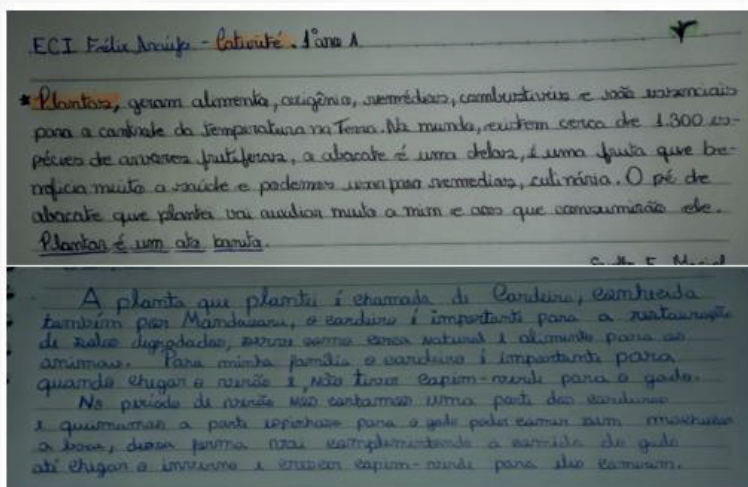 ECI Félix Araújo - Caturité. 1º ano A
* Plantas, geram alimento, oxigênio, remédios, combustíveis e são essenciais
para o controle da temperatura na Terra. No mundo, existem cerca de 1.300 es-
pécies de arvores frutíferas, o abacate é uma delas, é uma fruta que be-
neficia muito a saúde e podemos usar para remedios, culinária. O pé de
abacate que plantei vai auxiliar muito a mim e aos que consumirão ele.
Plantar é um ato bonito.
A planta que plantei é chamada de Cardeiro, conhecida
também por Mandacaru, o cardeiro é importante para a restauração
de solos degradados, serve como cerca natural e alimento para os
animais. Para minha família o cardeiro é importante para
quando chegar o verão e não tiver capim-verde para o gado.
No período de verão nós cortamos uma parte dos cardeiros
e queimamos a parte espinhosa para o gado poder comer sem machucar
a boca, dessa forma vai complementando a comida do gado
até chegar o inverno e crescer capim-verde para eles comerem.